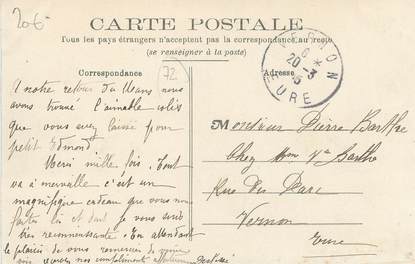 206
CARTE POSTALE
Tous les pays étrangers n'acceptent pas la correspondance au recto
(se renseigner à la poste)
Correspondance
72
Adresse
VERNON
6
20-3
EURE
A notre retour du Mans nous
avons trouvé l'aimable colis
que vous avez laissé pour
petit Edmond.
Merci mille fois. Tout
va à merveille c'est un
magnifique cadeau que vous nous
faites là et dont je vous suis
très reconnaissante. En attendant
le plaisir de vous remercier de
vive recevez nos compliments
Monsieur Pierre Barthe
Chez Mme Vve Barthe
Rue du Parc
Vernon
Eure